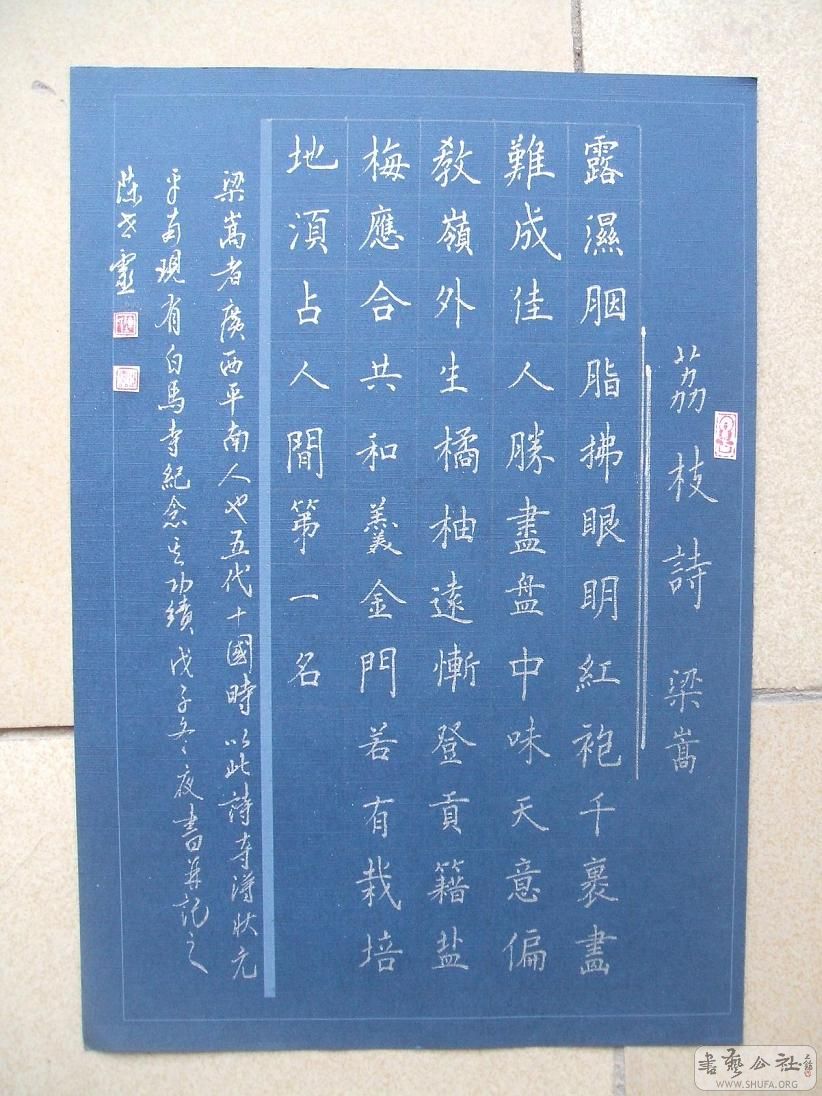 荔枝詩 梁嵩
露濕胭脂拂眼明紅袍千裹畫
難成佳人勝盡盘中味天意偏
教嶺外生橘柚遠慚登貢籍盐
梅應合共和羹金門若有栽培
地須占人間第一名
梁嵩者廣西平南人也五代十國時以此詩奪得狀元
平南現有白馬寺紀念其功績戊子冬夜書并記之
陈 靈
書藝公社
WWW.SHUFA.ORG